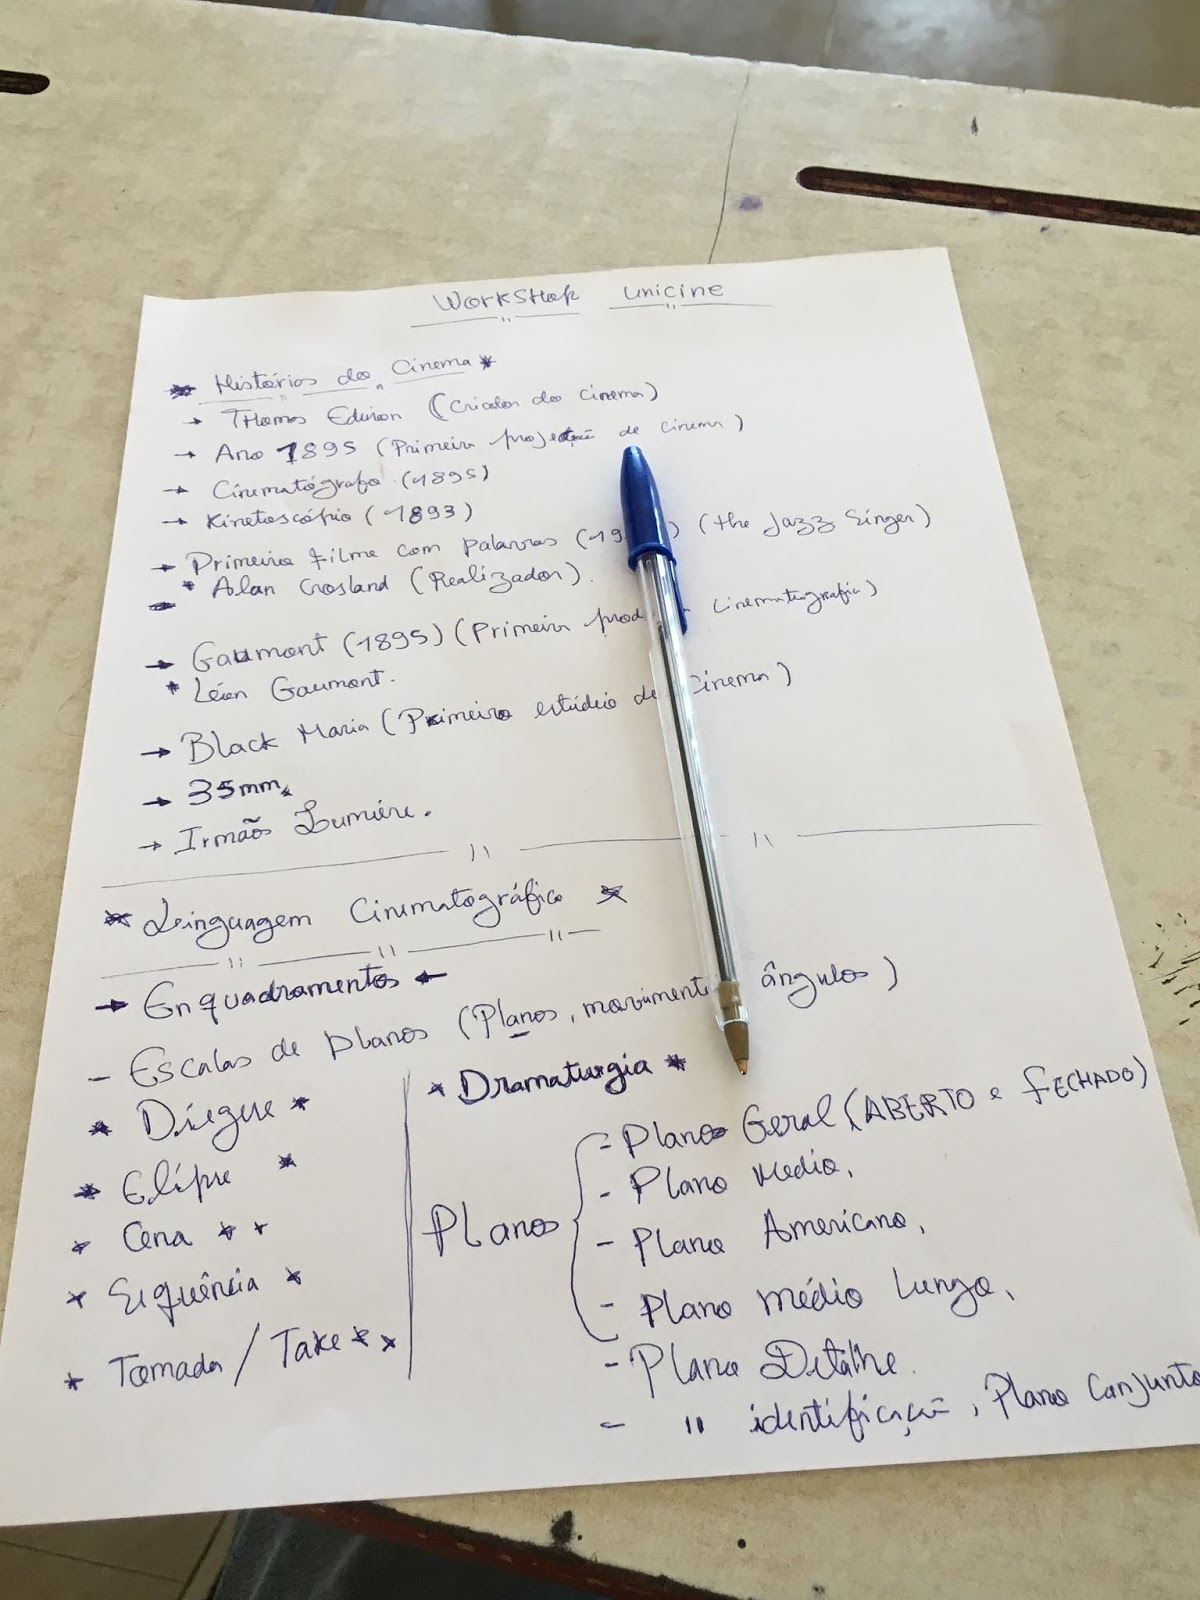 WORKSHOP unicine
* Histórias do Cinema *
→ Thomas Edison (Criador do Cinema)
→ Ano 1895 (Primeira projeção de cinema)
→ Cinematógrafo (1895)
→ Kinetoscópio (1893)
→ Primeiro filme com palavras (19 ) (the Jazz Singer)
* Alan Crosland (Realizador).
→ Gaumont (1895) (Primeira prod cinematografia)
* Léon Gaumont.
→ Black Maria (Primeiro estúdio de Cinema)
→ 35mm.
→ Irmãos Lumiére.
* Linguagem Cinematográfica *
→ Enquadramentos ←
- Escalas de planos (Planos, movimento ângulos)
* Dramaturgia *
* Diegue *
* Elípse *
* Cena * *
* Sequência *
* Tomada / Take * *
Planos
- Plano Geral (ABERTO e FECHADO)
- Plano Medio,
- Plano Americano,
- Plano médio Lungo,
- Plano Detalhe.
- " identificação, Plano Conjunto